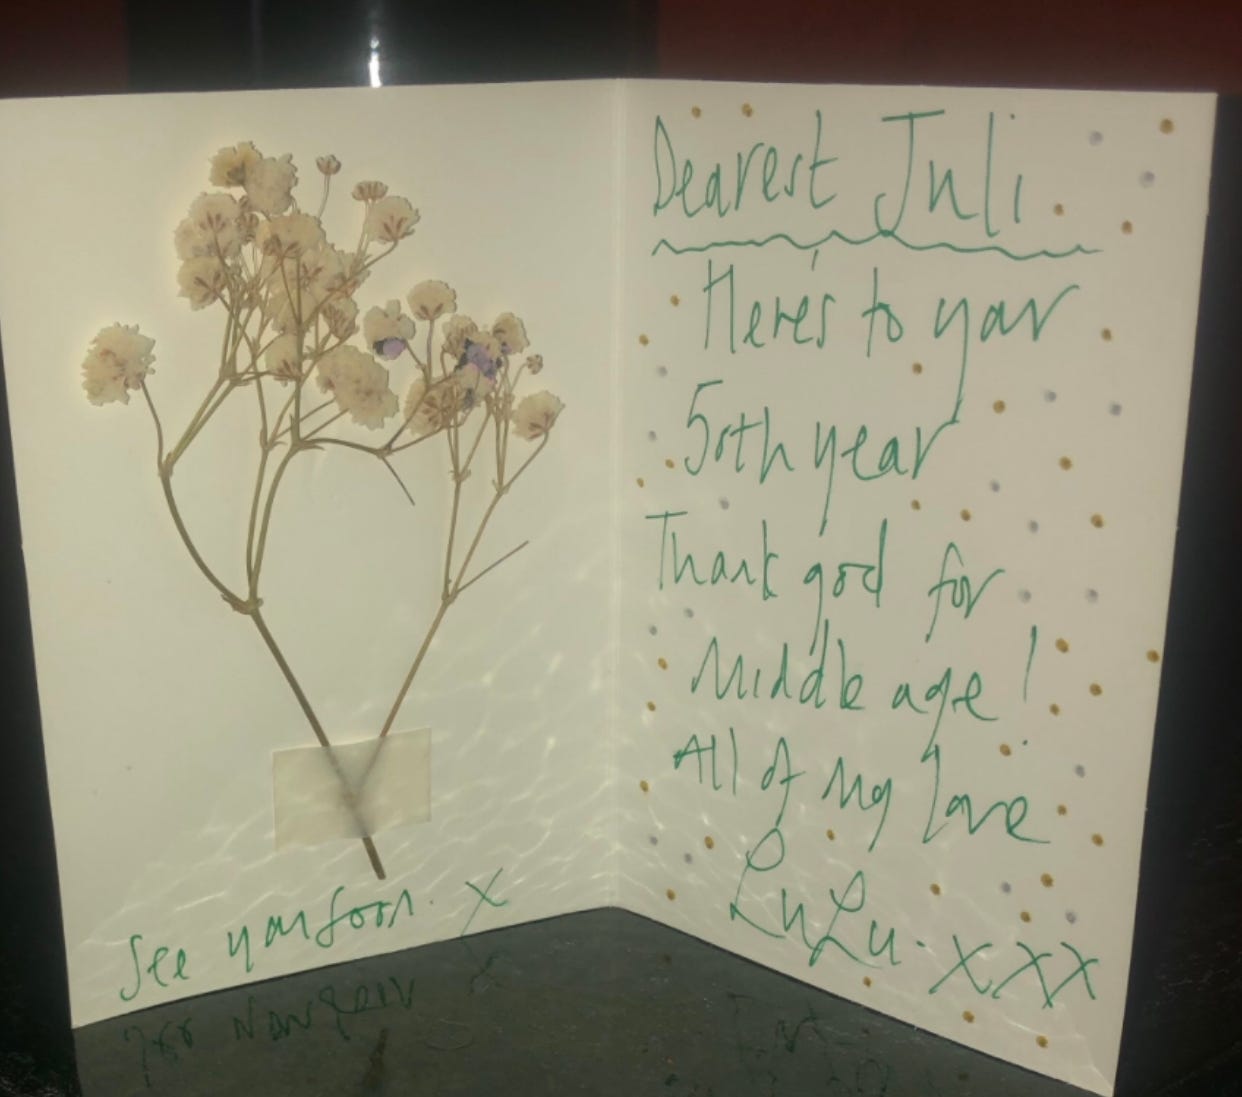 See you soon. X
Dearest Juli
Here's to your
50th year
Thank god for
Middle age!
All of my love
LuLu. XXX